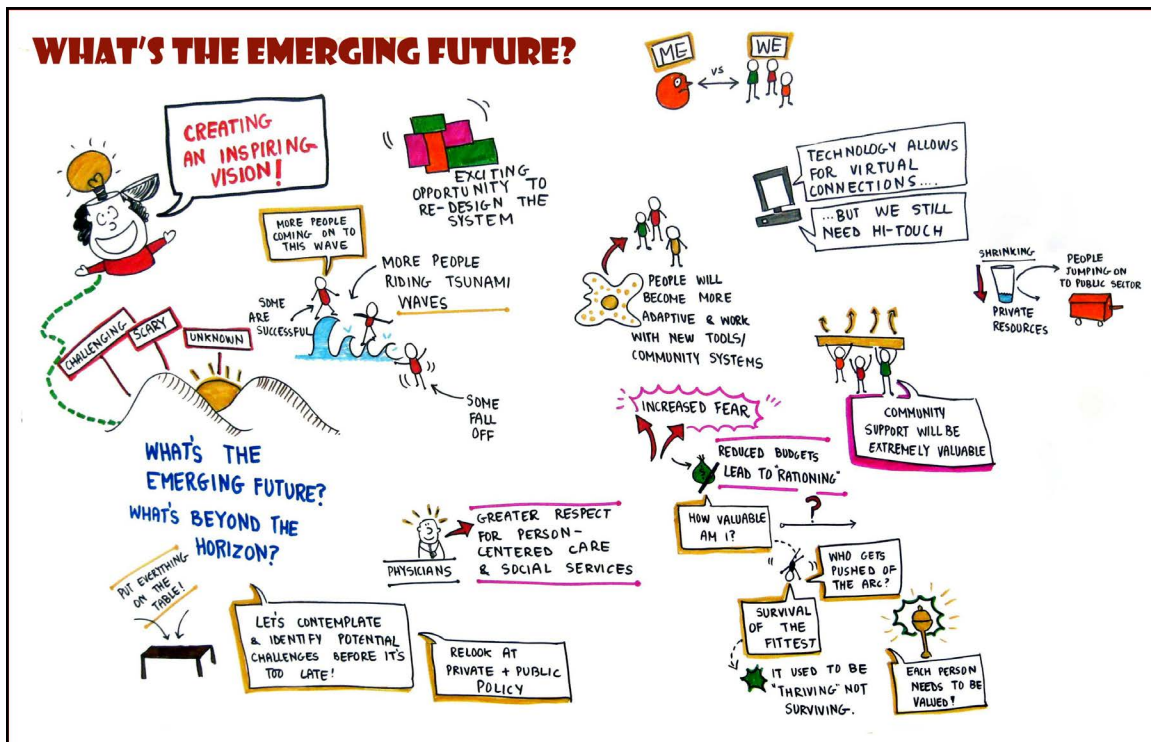 WHAT'S THE EMERGING FUTURE?
CREATING
AN INSPIRING
VISION!
EXCITING
OPPORTUNITY TO
RE-DESIGN THE
SYSTEM
ME
VS
WE
TECHNOLOGY ALLOWS
FOR VIRTUAL
CONNECTIONS....
...BUT WE STILL
NEED HI-TOUCH
MORE PEOPLE
COMING ON TO
THIS WAVE
MORE PEOPLE
RIDING TSUNAMI
WAVES
SOME
ARE
SUCCESSFUL
SOME
FALL
OFF
CHALLENGING
SCARY
UNKNOWN
PEOPLE WILL
BECOME MORE
ADAPTIVE & WORK
WITH NEW TOOLS/
COMMUNITY SYSTEMS
SHRINKING
PRIVATE
RESOURCES
PEOPLE
JUMPING ON
TO PUBLIC SECTOR
COMMUNITY
SUPPORT WILL BE
EXTREMELY VALUABLE
INCREASED FEAR
REDUCED BUDGETS
LEAD TO "RATIONING"
HOW VALUABLE
AM I?
?
WHO GETS
PUSHED OF
THE ARC?
SURVIVAL
OF THE
FITTEST
IT USED TO BE
"THRIVING" NOT
SURVIVING.
EACH PERSON
NEEDS TO BE
VALUED!
WHAT'S THE
EMERGING FUTURE?
WHAT'S BEYOND THE
HORIZON?
PHYSICIANS
GREATER RESPECT
FOR PERSON-
CENTERED CARE
& SOCIAL SERVICES
PUT EVERYTHING
ON THE
TABLE!
LET'S CONTEMPLATE
& IDENTIFY POTENTIAL
CHALLENGES BEFORE IT'S
TOO LATE!
RELOOK AT
PRIVATE + PUBLIC
POLICY